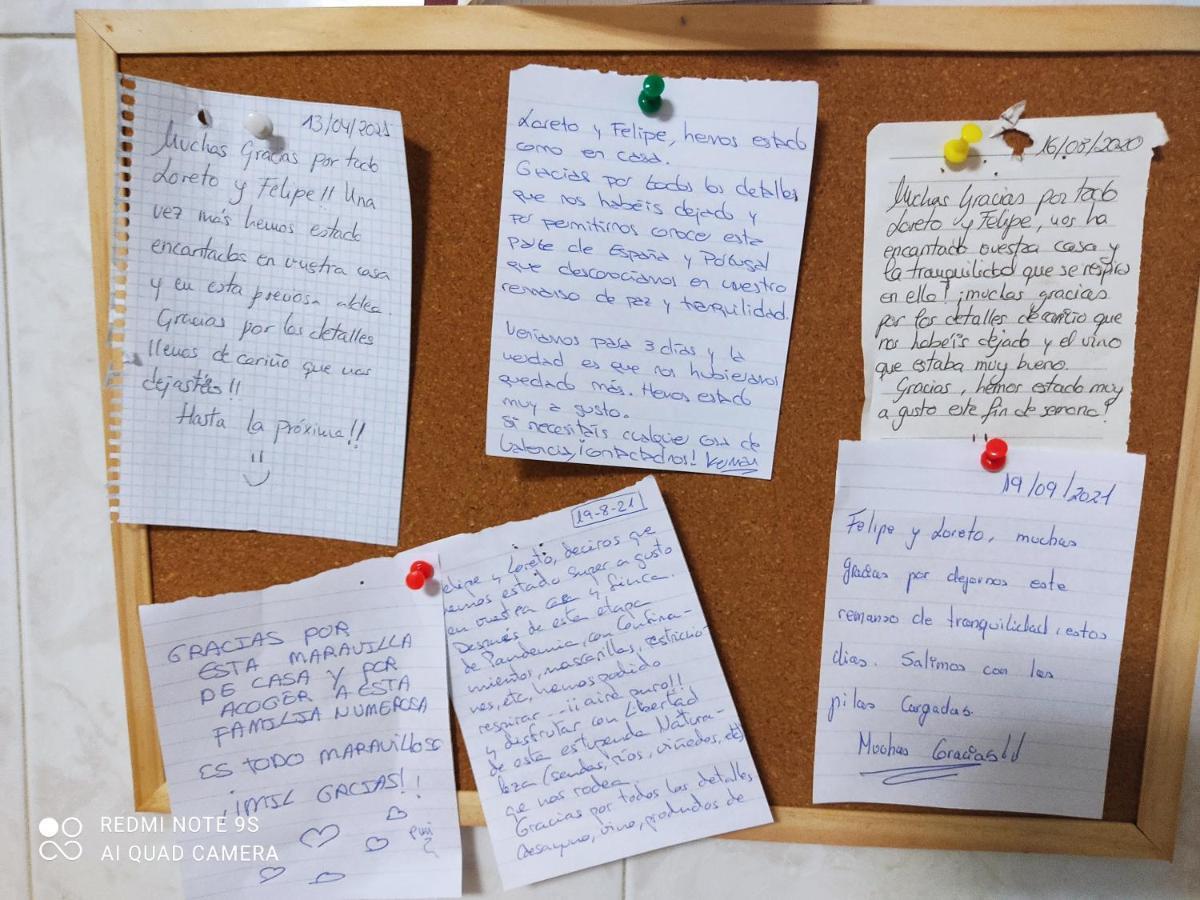 13/04/2021
Muchas Gracias por todo
Loreto y Felipe!! Una
vez más hemos estado
encantados en vuestra casa
y en esta preciosa aldea.
Gracias por los detalles
llenos de cariño que nos
dejastéis!!
Hasta la próxima!!
Loreto y Felipe, hemos estado
como en casa.
Gracias por todos los detalles
que nos habéis dejado y
por permitirnos conocer esta
parte de España y Portugal
que desconocíamos en vuestro
remanso de paz y tranquilidad.
Veníamos para 3 días y la
verdad es que nos hubiéramos
quedado más. Hemos estado
muy a gusto.
Si necesitáis cualquier cosa de
Valencia, ¡contactadnos!
16/08/2020
Muchas Gracias por todo
Loreto y Felipe, nos ha
encantado vuestra casa y
la tranquilidad que se respira
en ella! ¡muchas gracias
por los detalles de cariño que
nos habéis dejado y el vino
que estaba muy bueno.
Gracias, hemos estado muy
a gusto este fin de semana!
GRACIAS POR
ESTA MARAVILLA
DE CASA Y POR
ACOGER A ESTA
FAMILIA NUMEROSA
ES TODO MARAVILLOSO
¡¡MIL GRCIAS!!
19-8-21
elipe y Loreto, deciros que
hemos estado super a gusto
en vuestra casa y finca.
Después de esta etapa
de Pandemia, con confina-
mientos, mascarillas, restriccio-
nes, etc, hemos podido
respirar ... ¡¡ aire puro!!
y disfrutar con Libertad
de esta estupenda Natura-
leza (sendas, ríos, viñedos, etc)
que nos rodea.
Gracias por todos los detalles
desayuno, vino, productos de
19/09/2021
Felipe y Loreto, muchas
gracias por dejarnos este
remanso de tranquilidad, estos
días. Salimos con las
pilas cargadas.
Muchas Gracias!!!
REDMI NOTE 9S
AI QUAD CAMERA